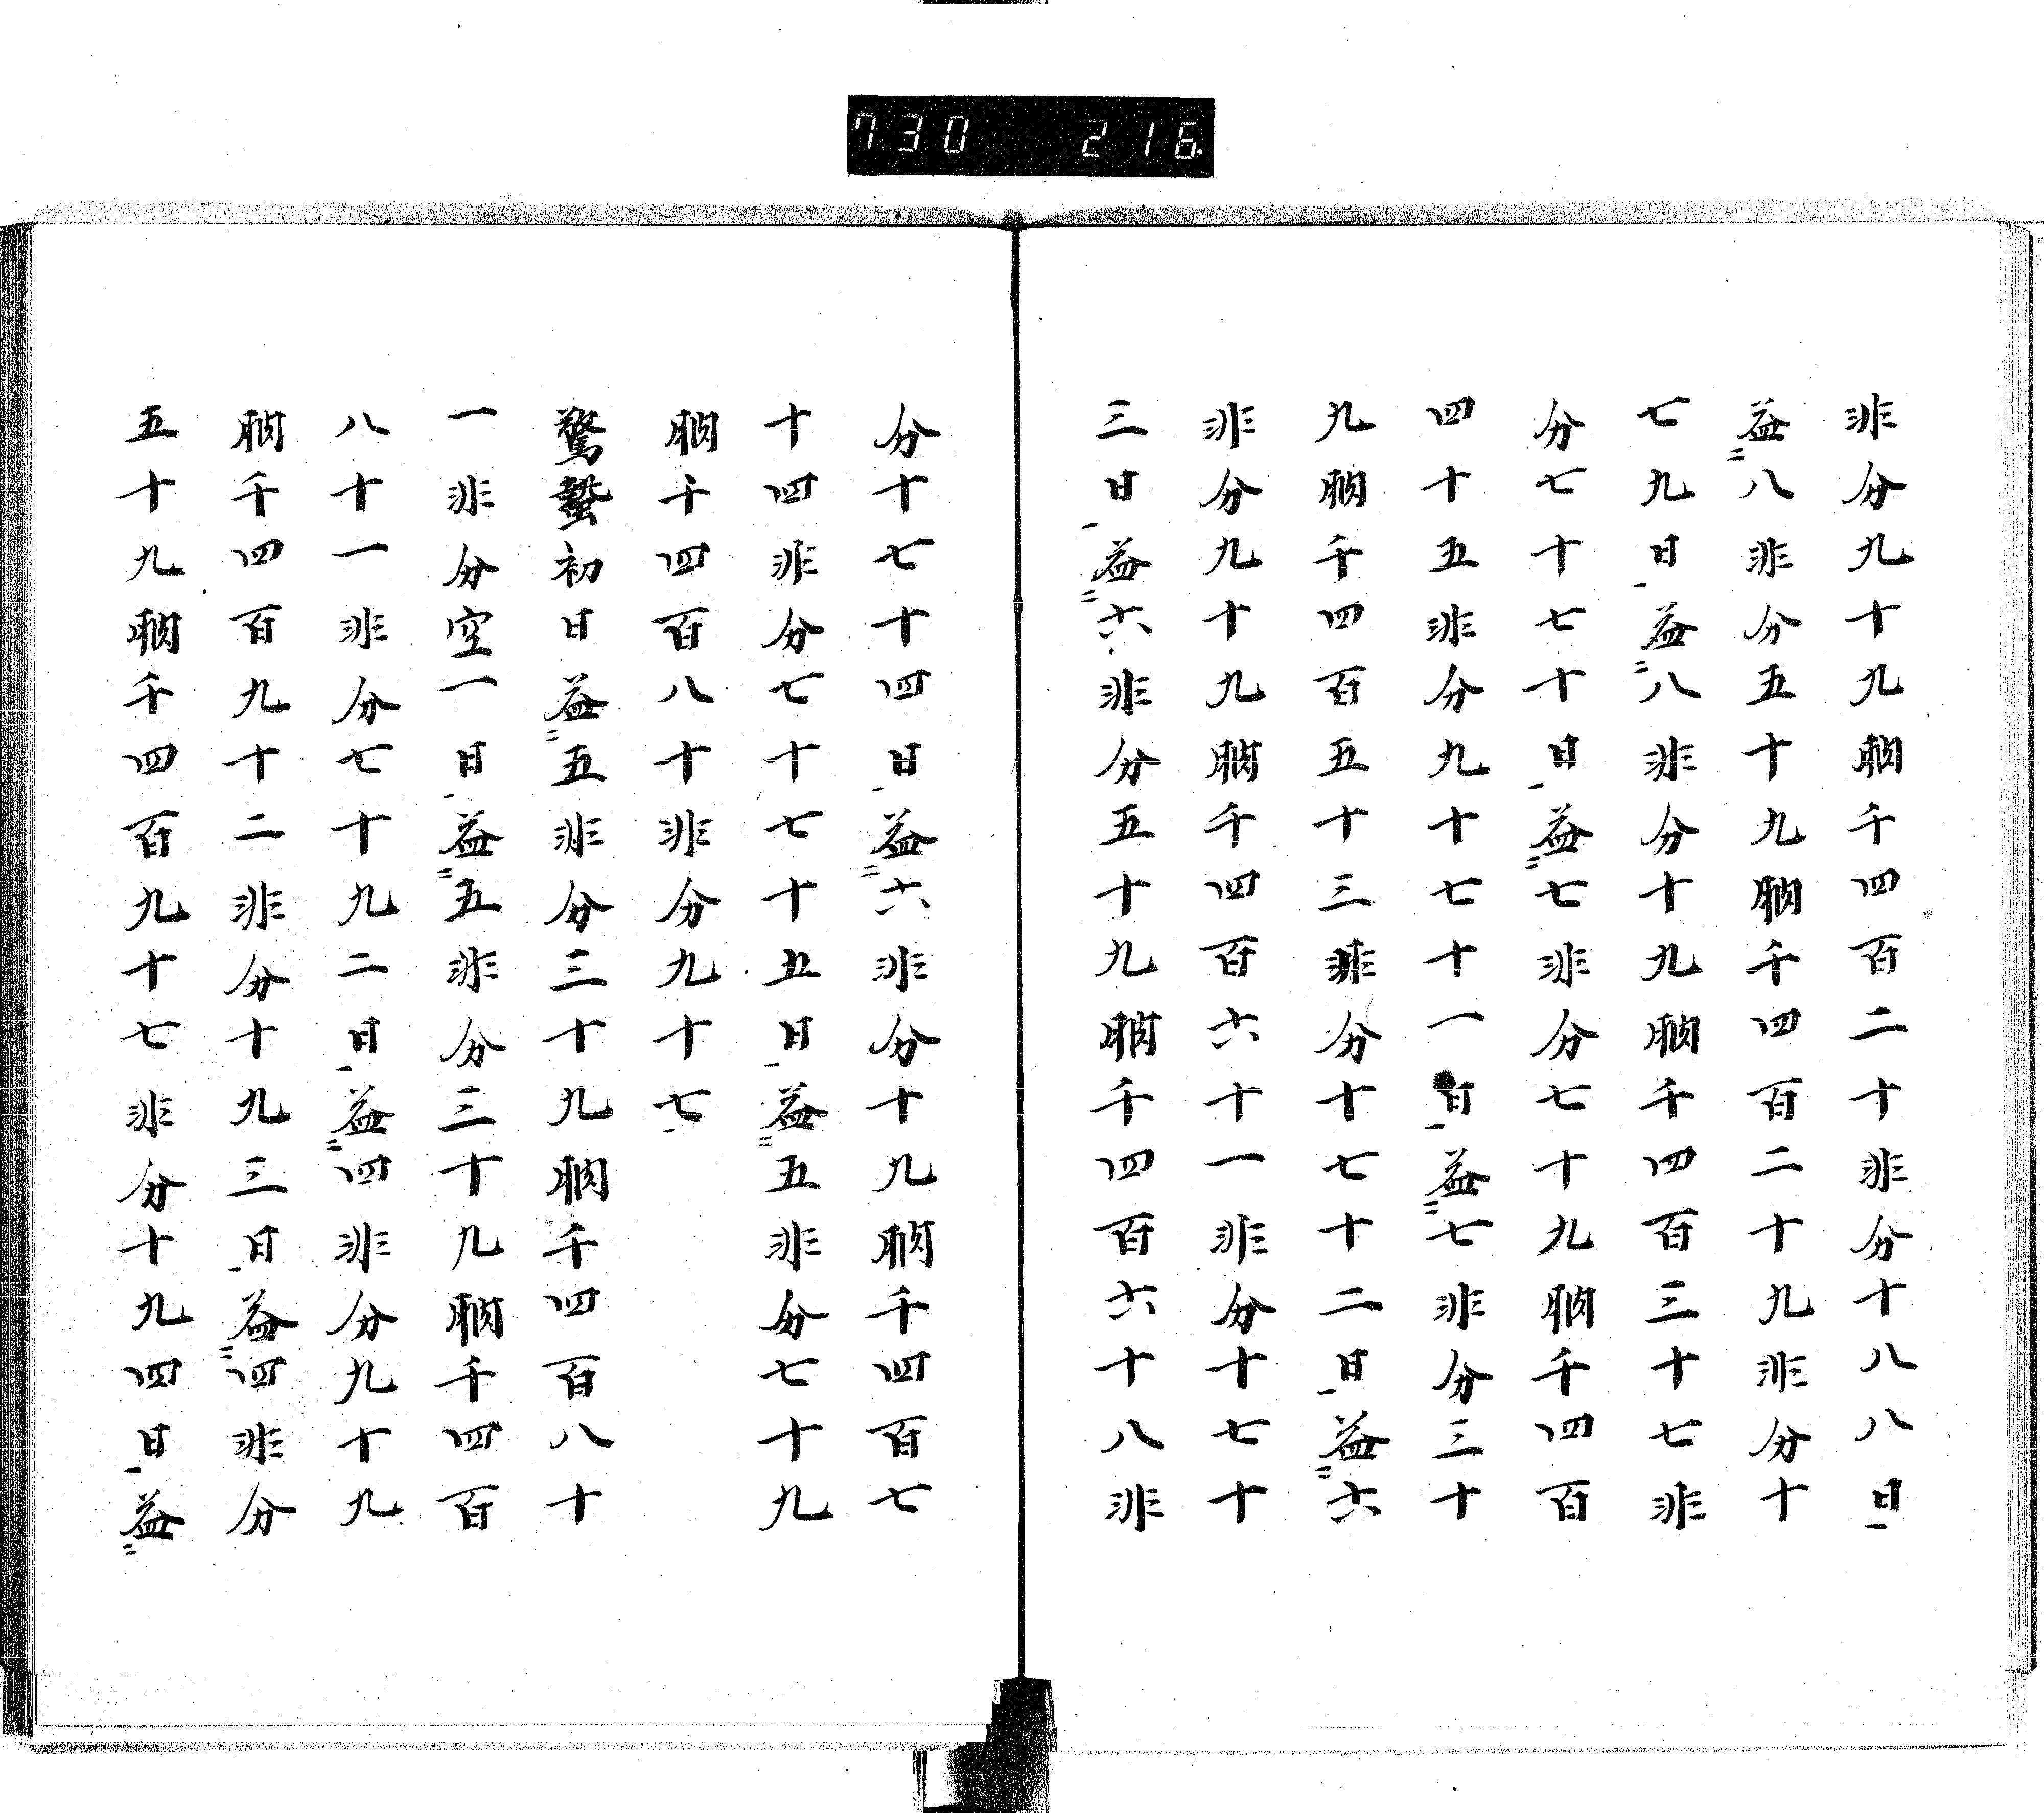 730 216.
非分九十九朒千四百二十非分十八八日
益八非分五十九朒千四百二十九非分十
七九日益八非分十九朒千四百三十七非
分七十七十日益七非分七十九朒千四百
四十五非分九十七十一日益七非分三十
九朒千四百五十三非分十七十二日益六
非分九十九朒千四百六十一非分十七十
三日益六非分五十九朒千四百六十八非
分十七十四日益六非分十九朒千四百七
十四非分七十七十五日益五非分七十九
朒千四百八十非分九十七
驚蟄初日益五非分三十九朒千四百八十
一非分空一日益五非分三十九朒千四百
八十一非分七十九二日益四非分九十九
朒千四百九十二非分十九三日益四非分
五十九朒千四百九十七非分十九四日益